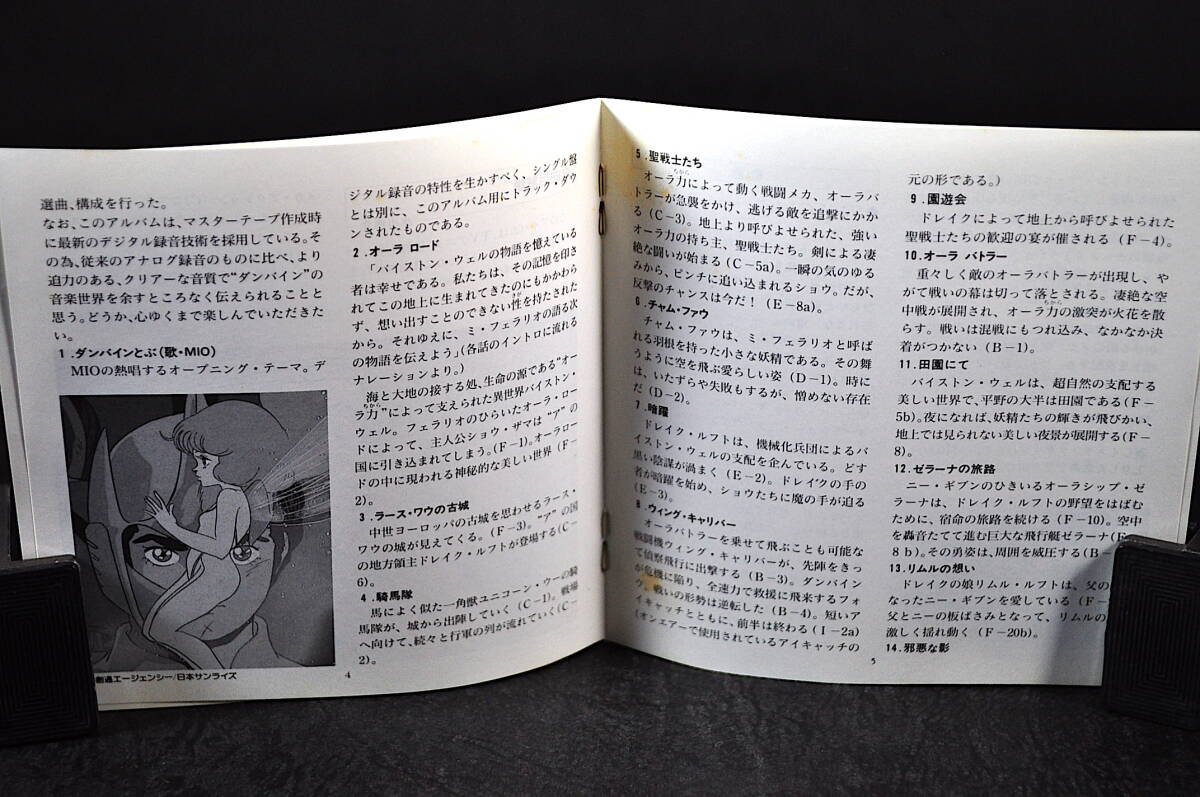 選曲、構成を行った。
なお、このアルバムは、マスターテープ作成時
に最新のデジタル録音技術を採用している。そ
の為、従来のアナログ録音のものに比べ、より
迫力のある、クリアーな音質で“ダンバイン”の
音楽世界を余すところなく伝えられることと
思う。どうか、心ゆくまで楽しんでいただきた
い。
1.ダンバインとぶ(歌・MIO)
MIOの熱唱するオープニング・テーマ。デ
創通エージェンシー/日本サンライズ
ジタル録音の特性を生かすべく、シングル盤
とは別に、このアルバム用にトラック・ダウ
ンされたものである。
2.オーラ ロード
「バイストン・ウェルの物語を憶えている
者は幸せである。私たちは、その記憶を印さ
れてこの地上に生まれてきたのにもかかわら
ず、想い出すことのできない性を持たされた
から。それゆえに、ミ・フェラリオの語る次
の物語を伝えよう」(各話のイントロに流れる
ナレーションより。)
海と大地の接する処、生命の源である“オー
ラ力”によって支えられた異世界バイストン・
ウェル。フェラリオのひらいたオーラ・ロー
ドによって、主人公ショウ・ザマは“ア”の
国に引き込まれてしまう。(F-1)。オーラロー
ドの中に現われる神秘的な美しい世界(F-
2)。
3.ラース・ワウの古城
中世ヨーロッパの古城を思わせるラース・
ワウの城が見えてくる。(F-3)。“ア”の国
の地方領主ドレイク・ルフトが登場する(C-
6)。
4.騎馬隊
馬によく似た一角獣ユニコーン・ウーの騎
馬隊が、城から出陣していく(C-1)。戦場
へ向けて、続々と行軍の列が流れていく(C-
2)。
4
5.聖戦士たち
オーラ力によって動く戦闘メカ、オーラバ
トラーが急襲をかけ、逃げる敵を追撃にかか
る(C-3)。地上より呼びよせられた、強い
オーラ力の持ち主、聖戦士たち。剣による凄
絶な闘いが始まる(C-5a)。一瞬の気のゆる
みから、ピンチに追い込まれるショウ。だが、
反撃のチャンスは今だ!(E-8a)。
6.チャム・ファウ
チャム・ファウは、ミ・フェラリオと呼ば
れる羽根を持った小さな妖精である。その舞
うように空を飛ぶ愛らしい姿(D-1)。時に
は、いたずらや失敗もするが、憎めない存在
だ(D-2)。
7.暗躍
ドレイク・ルフトは、機械化兵団によるバ
イストン・ウェルの支配を企んでいる。どす
黒い陰謀が渦まく(E-2)。ドレイクの手の
者が暗躍を始め、ショウたちに魔の手が迫る
(E-3)。
8.ウィング・キャリバー
オーラバトラーを乗せて飛ぶことも可能な
戦闘機ウィング・キャリバーが、先陣をきっ
て偵察飛行に出撃する(B-3)。ダンバイン
が危機に陥り、全速力で救援に飛来するフォ
ウ。戦いの形勢は逆転した(B-4)。短いア
イキャッチとともに、前半は終わる(I-2a)
(オンエアーで使用されているアイキャッチの
5
元の形である。)
9.園遊会
ドレイクによって地上から呼びよせられた
聖戦士たちの歓迎の宴が催される(F-4)。
10.オーラ バトラー
重々しく敵のオーラバトラーが出現し、や
がて戦いの幕は切って落とされる。凄絶な空
中戦が展開され、オーラ力の激突が火花を散
らす。戦いは混戦にもつれ込み、なかなか決
着がつかない(B-1)。
11.田園にて
バイストン・ウェルは、超自然の支配する
美しい世界で、平野の大半は田園である(F-
5b)。夜になれば、妖精たちの輝きが飛びかい、
地上では見られない美しい夜景が展開する(F-
8)。
12.ゼラーナの旅路
ニー・ギブンのひきいるオーラシップ・ゼ
ラーナは、ドレイク・ルフトの野望をはばむ
ために、宿命の旅路を続ける(F-10)。空中
を轟音たてて進む巨大な飛行艇ゼラーナ(F-
8b)。その勇姿は、周囲を威圧する(B-
13.リムルの想い
ドレイクの娘リムル・ルフトは、父の
なったニー・ギブンを愛している(F-
父とニーの板ばさみとなって、リムルの
激しく揺れ動く(F-20b)。
14.邪悪な影